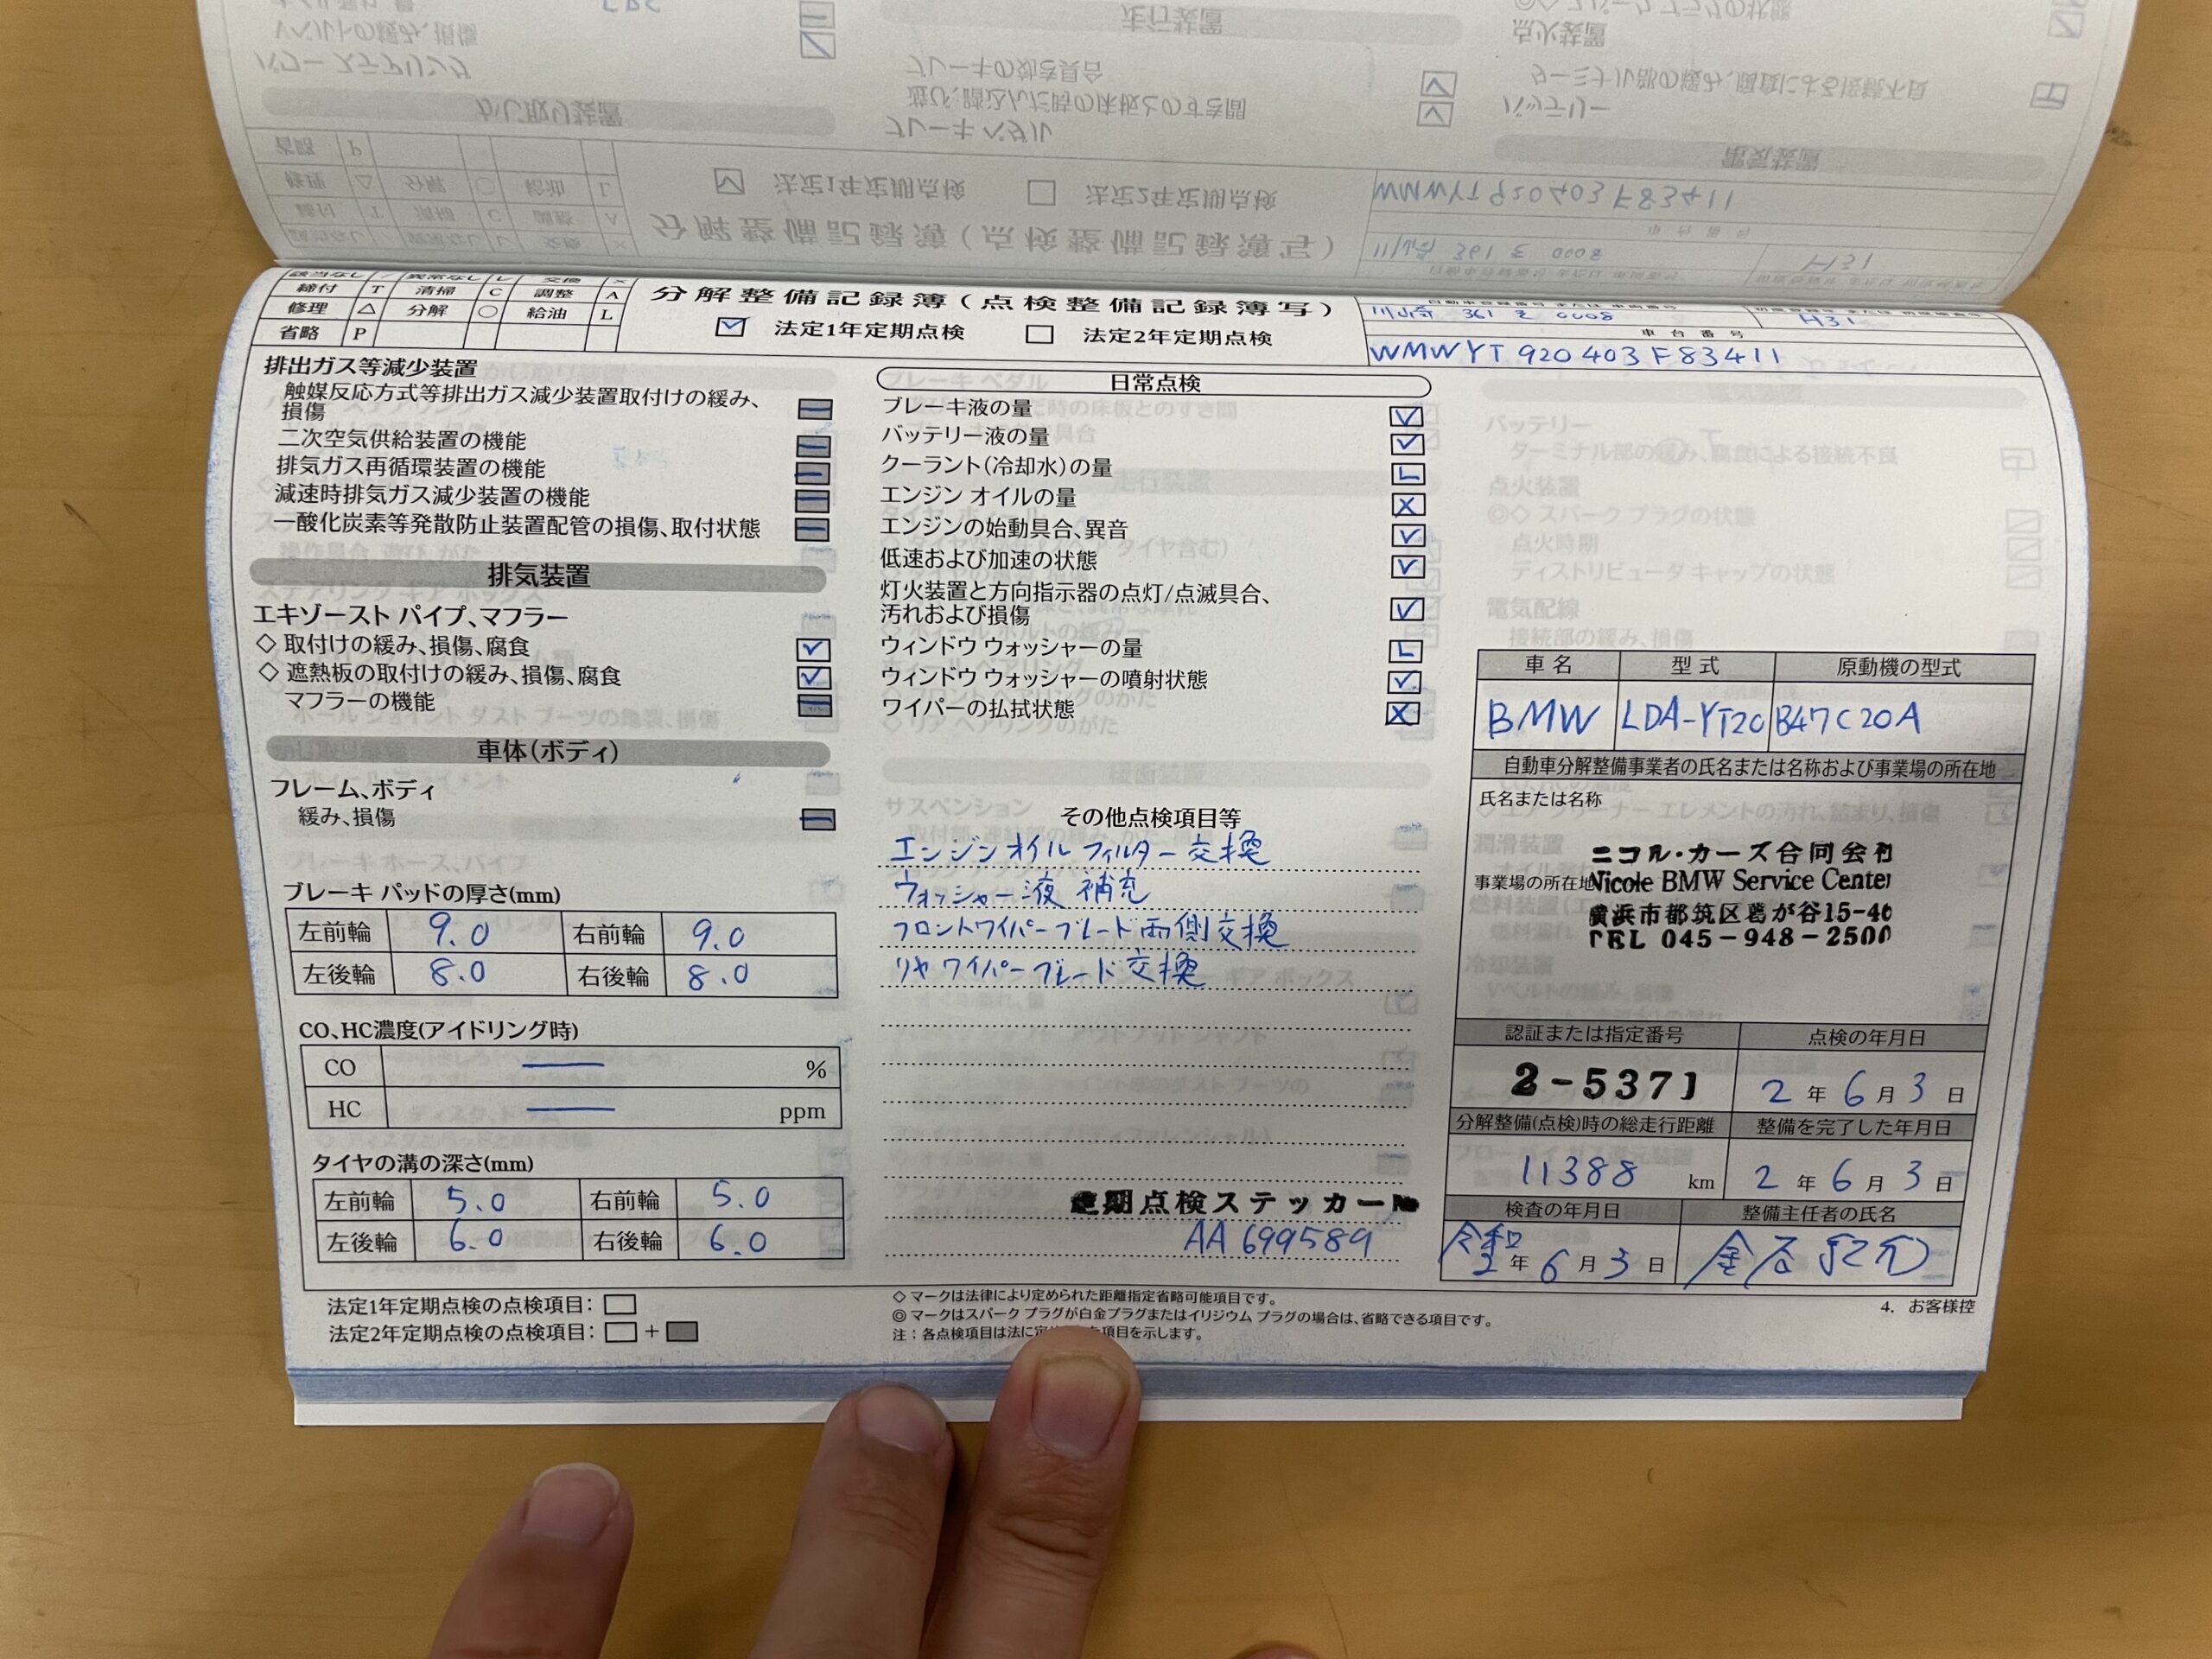 該当なし / 異常なし レ 交換 ×
締付 T 清掃 C 調整 A
修理 △ 分解 ○ 給油 L
省略 P
分解整備記録簿(点検整備記録簿写)
法定1年定期点検 法定2年定期点検
自動車登録番号 または 車両番号
川崎 361 そ 0008
H31
車台番号
WMWYT920403F83411
排出ガス等減少装置
触媒反応方式等排出ガス減少装置取付けの緩み、
損傷
二次空気供給装置の機能
排気ガス再循環装置の機能
減速時排気ガス減少装置の機能
一酸化炭素等発散防止装置配管の損傷、取付状態
排気装置
エキゾースト パイプ、マフラー
◇ 取付けの緩み、損傷、腐食
◇ 遮熱板の取付けの緩み、損傷、腐食
マフラーの機能
車体(ボディ)
フレーム、ボディ
緩み、損傷
ブレーキ パッドの厚さ(mm)
左前輪 9.0 右前輪 9.0
左後輪 8.0 右後輪 8.0
CO、HC濃度(アイドリング時)
CO — %
HC — ppm
タイヤの溝の深さ(mm)
左前輪 5.0 右前輪 5.0
左後輪 6.0 右後輪 6.0
法定1年定期点検の点検項目:
法定2年定期点検の点検項目: +
日常点検
ブレーキ液の量
バッテリー液の量
クーラント(冷却水)の量 L
エンジン オイルの量 X
エンジンの始動具合、異音
低速および加速の状態
灯火装置と方向指示器の点灯/点滅具合、
汚れおよび損傷
ウィンドウ ウォッシャーの量 L
ウィンドウ ウォッシャーの噴射状態
ワイパーの払拭状態 X
その他点検項目等
エンジンオイル フィルター 交換
ウォッシャー液 補充
フロントワイパーブレード両側交換
リヤワイパーブレード交換
定期点検ステッカーNo
AA 699589
◇ マークは法律により定められた距離指定省略可能項目です。
◎ マークはスパーク プラグが白金プラグまたはイリジウム プラグの場合は、省略できる項目です。
注:各点検項目は法に定 項目を示します。
車名 型式 原動機の型式
BMW LDA-YT20 B47C20A
自動車分解整備事業者の氏名または名称および事業場の所在地
氏名または名称
ニコル・カーズ合同会社
事業場の所在地
Nicole BMW Service Center
横浜市都筑区葛が谷15-46
TEL 045-948-2500
認証または指定番号 点検の年月日
2-5371 2年6月3日
分解整備(点検)時の総走行距離 整備を完了した年月日
11388 km 2年6月3日
検査の年月日 整備主任者の氏名
令和2年6月3日
4. お客様控